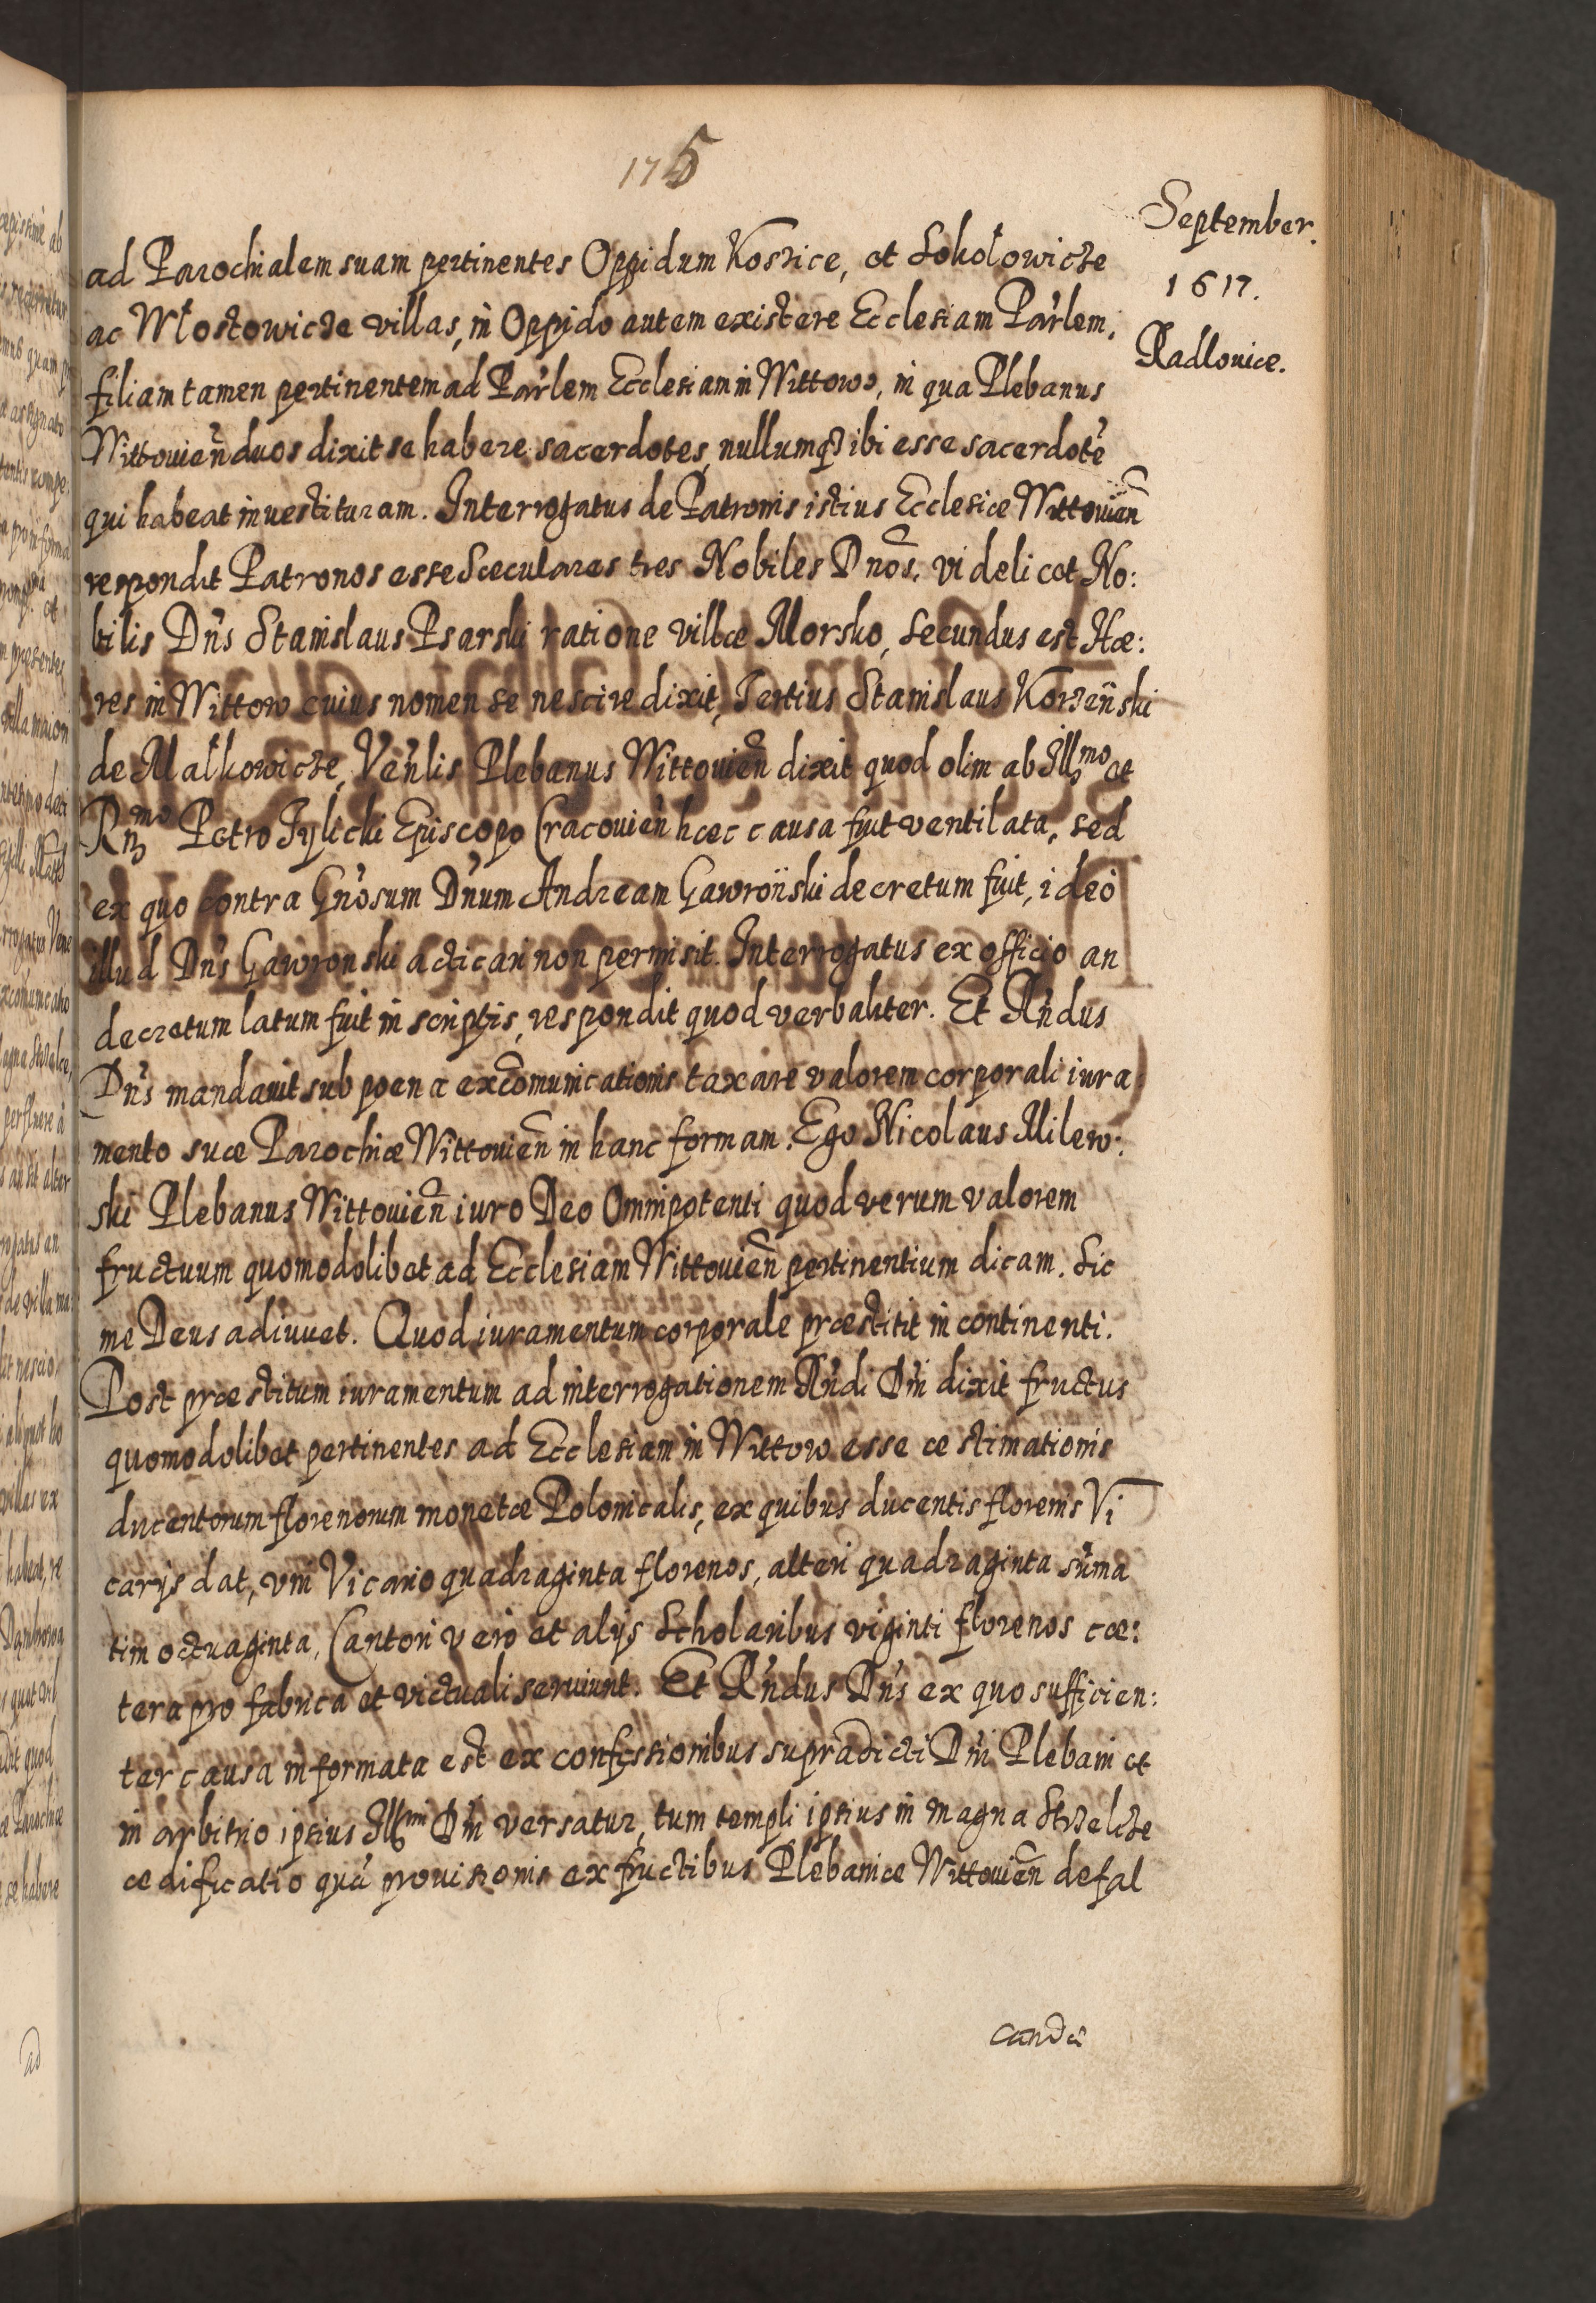 175
September.
1617.
Radlouice.
ad Parochialem suam pertinentes Oppidum Koszice, et Sokołowicze
ac Włostowicze villas, in Oppido autem existere Ecclesiam Par'lem,
filiam tamen pertinentem ad Par'lem Ecclesiam in Wittowo, in qua Plebanus
Wittouien̄ duos dixit se habere sacerdotes, nullumqȝ ibi esse sacerdotē
qui habeat inuestituram. Interrogatus de Patronis istius Ecclesiæ Wittouien̄
respondit Patronos esse Sæculares tres Nobiles Dnōs, videlicet No:
bilis Dn's Stanislaus Psarski ratione villæ Morsko, secundus est Hæ:
res in Wittow cuius nomen se nescire dixit, Tertius Stanislaus Korzeński
de Małkowicze, Ven'lis Plebanus Wittouien̄ dixit quod olim ab Illmo et
Rmo Petro Tylicki Episcopo Cracouien̄ hæc causa fuit ventilata, sed
ex quo contra Gn'osum Dn'um Andream Gawroński decretum fuit, ideo
illud Dn's Gawronski acticari non permisit. Interrogatus ex officio an
decretum latum fuit in scriptis, respondit quod verbaliter. Et Rn'dus
Dn's mandauit sub poena excōmunicationis taxare valorem corporali iura
mento suæ Parochiæ Wittouien̄ in hanc formam. Ego Nicolaus Milew:
ski Plebanus Wittouien̄ iuro Deo Omnipotenti quod verum valorem
fructuum quomodolibet ad Ecclesiam Wittouien̄ pertinentium dicam. Sic
me Deus adiuuet. Quod iuramentum corporale præstitit in continenti.
Post præstitum iuramentum ad interrogationem Rn'di Dn'i dixit fructus
quomodolibet pertinentes ad Ecclesiam in Wittow esse æstimationis
ducentorum florenorum monetæ Polonicalis, ex quibus ducentis florenis Vi
carijs dat, vni Vicario quadraginta florenos, alteri quadraginta sūma
tim octuaginta, Cantori vero et alijs Scholaribus viginti florenos cæ:
tera pro fabrica et victuali seruiunt. Et Rn'dus Dn's ex quo sufficien:
ter causa informata est ex confessionibus supradicti Dn'i Plebani et
in arbitrio ipsius Illmi Dn'i versatur, tum templi ipsius in Magna Strzelcze
ædificatio quā prouisionis ex fructibus Plebaniæ Wittouien̄ defal